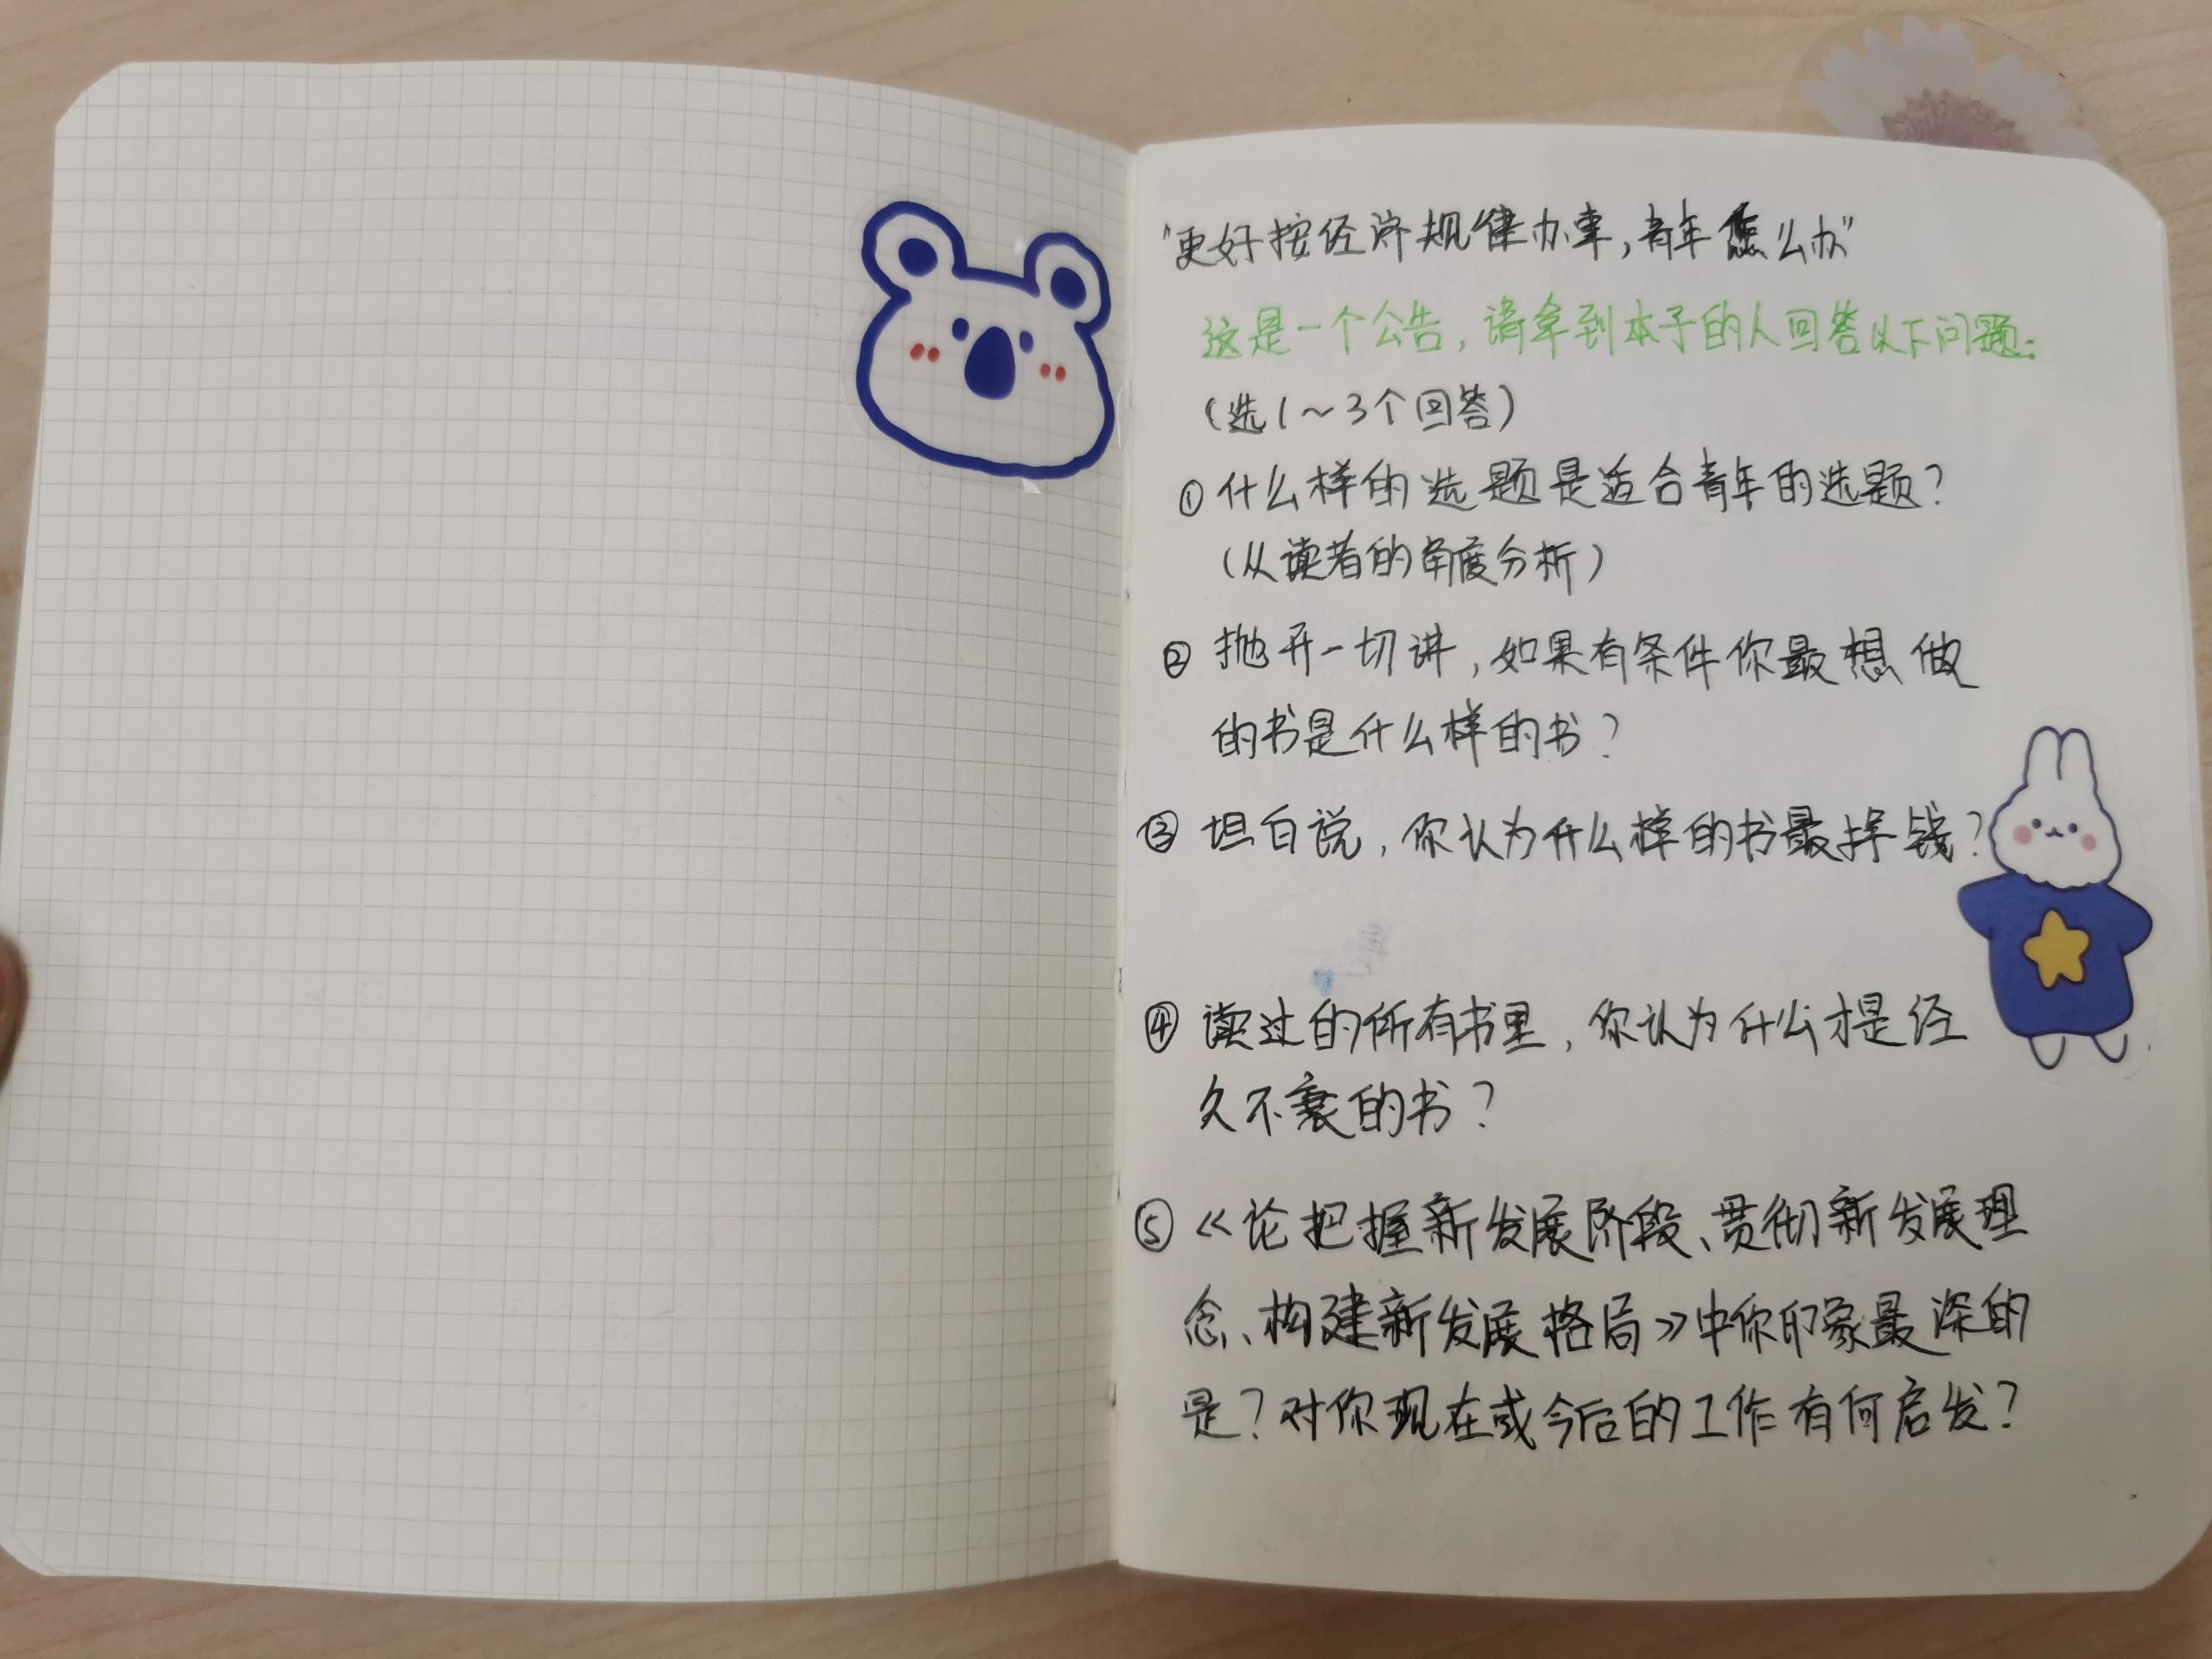 “更好按经济规律办事，青年怎么办”
这是一个公告，请拿到本子的人回答以下问题：
（选1～3个回答）
①什么样的选题是适合青年的选题？
（从读者的角度分析）
②抛开一切讲，如果有条件你最想做
的书是什么样的书？
③坦白说，你认为什么样的书最挣钱？
④读过的所有书里，你认为什么才是经
久不衰的书？
⑤《论把握新发展阶段、贯彻新发展理
念、构建新发展格局》中你印象最深的
是？对你现在或今后的工作有何启发？